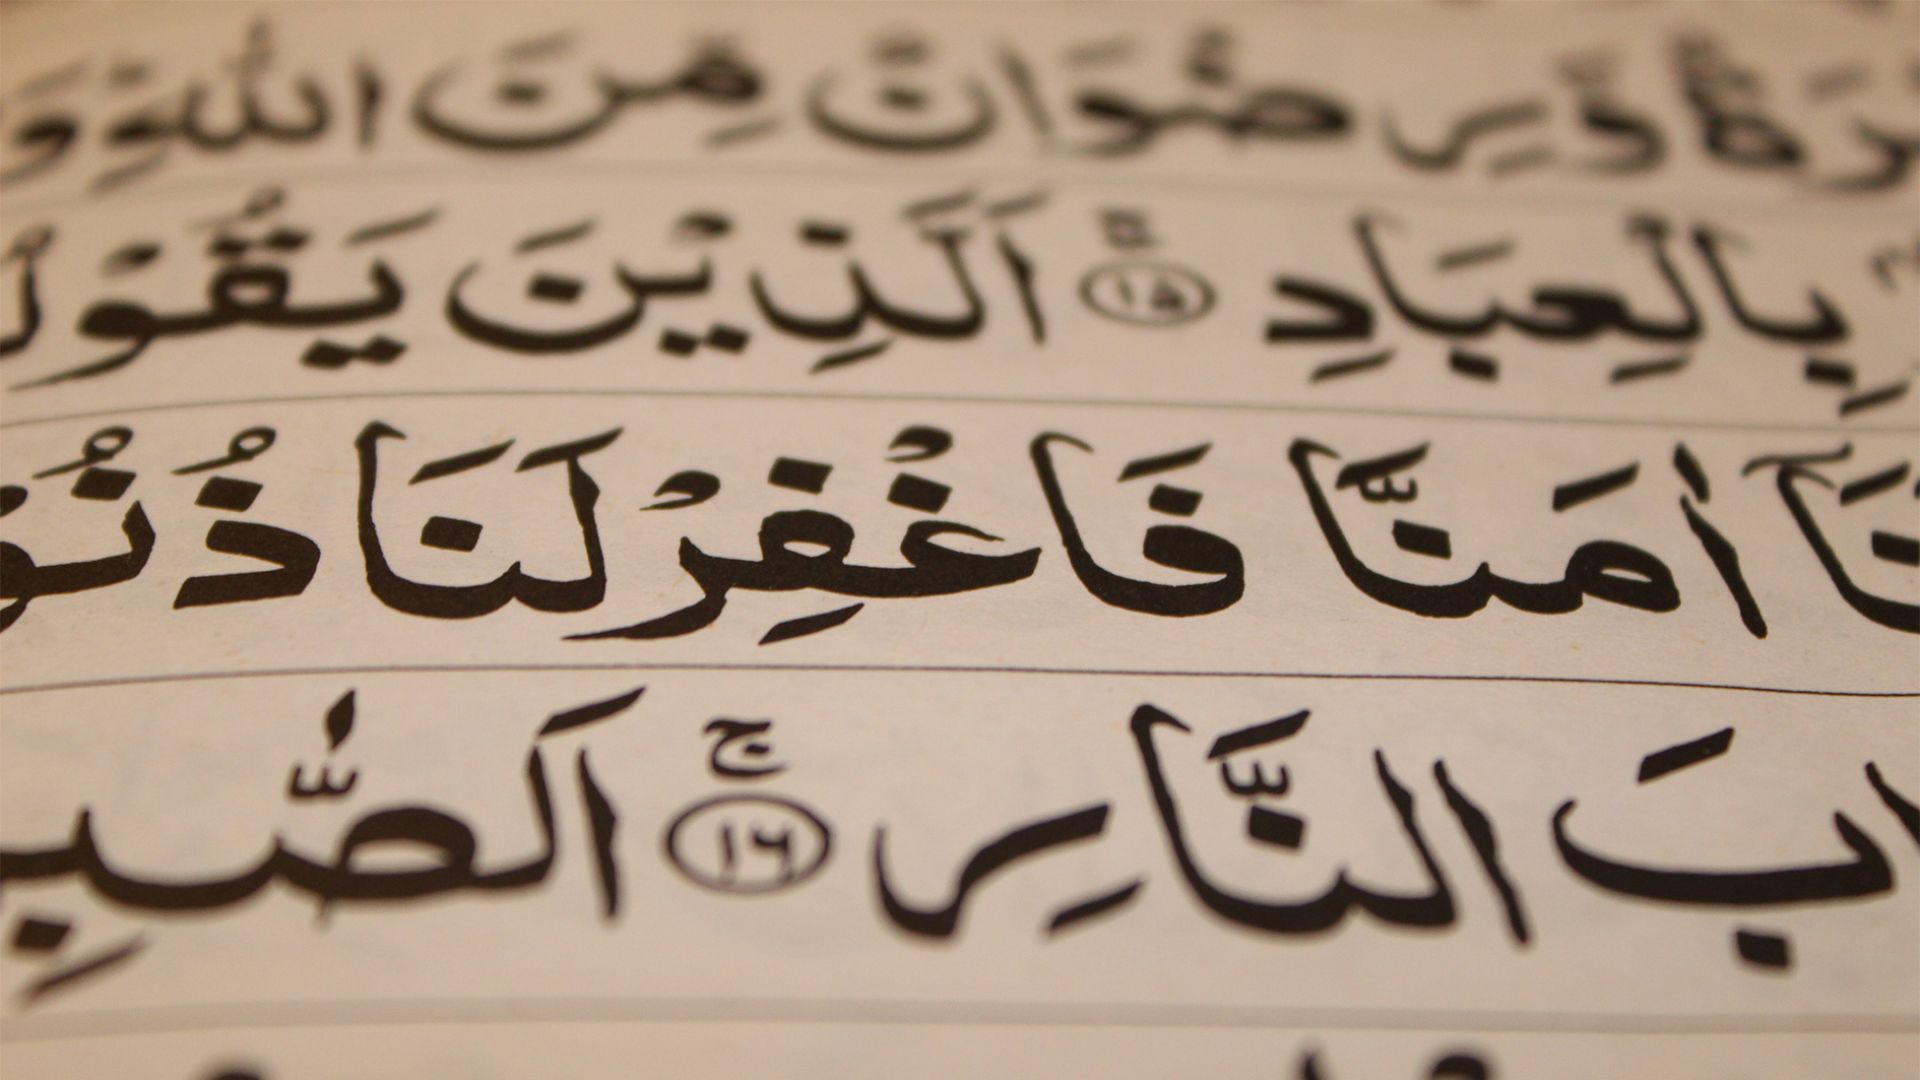 وَّرِضْوَانٌ مِّنَ اللّٰهِ
بِالْعِبَادِ ﴿۱۵﴾ اَلَّذِیْنَ یَقُوْلُ
نَاۤ اٰمَنَّا فَاغْفِرْ لَنَا ذُنُوْ
ابَ النَّارِ ﴿۱۶﴾ ۚ اَلصّٰبِ